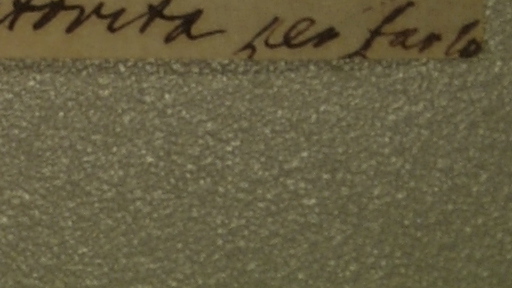 torita per farlo